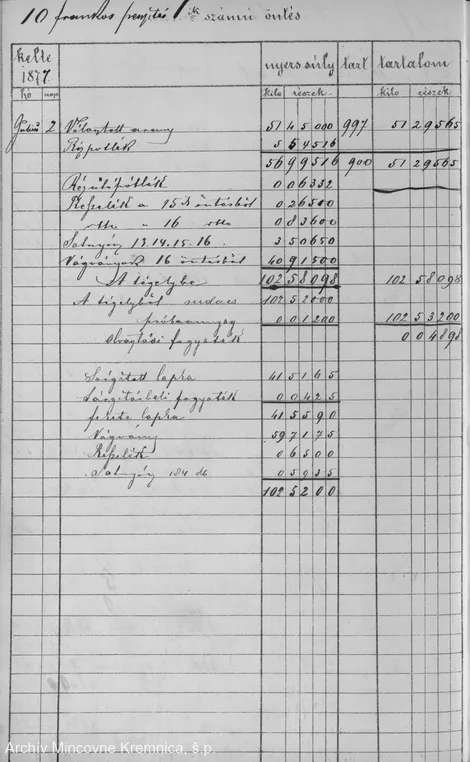 10 frankos 1 ik számú öntés
kelte 1877. nyerssúly tart tartalom
hó nap kiló részek. kiló részek
Julius 2 Választott arany 51 45 000 997 51 29565
Rézpótlék 5 54516
56 99516 900 51 29565
Rézutópótlék 0 06332
Reszelék a 15 ik öntésből 0 26500
otto " 16 otto 0 83600
13.14.15.16. 3 50650
Vágványok 16 öntésből 40 91500
A tégelybe 102 58098 102 58098
A tégelyből 102 52000
próbaanyag 0 01200 102 53200
olvasztási fogyaték 0 04898
Sárgitott lapka 41 5165
Sárgitásbeli fogyaték 0 0425
fekete lapka 41 5590
Vágvány 59 7175
Reszelék 0 6500
184 db 0 5935
102 5200
Archív Mincovne Kremnica, š.p.